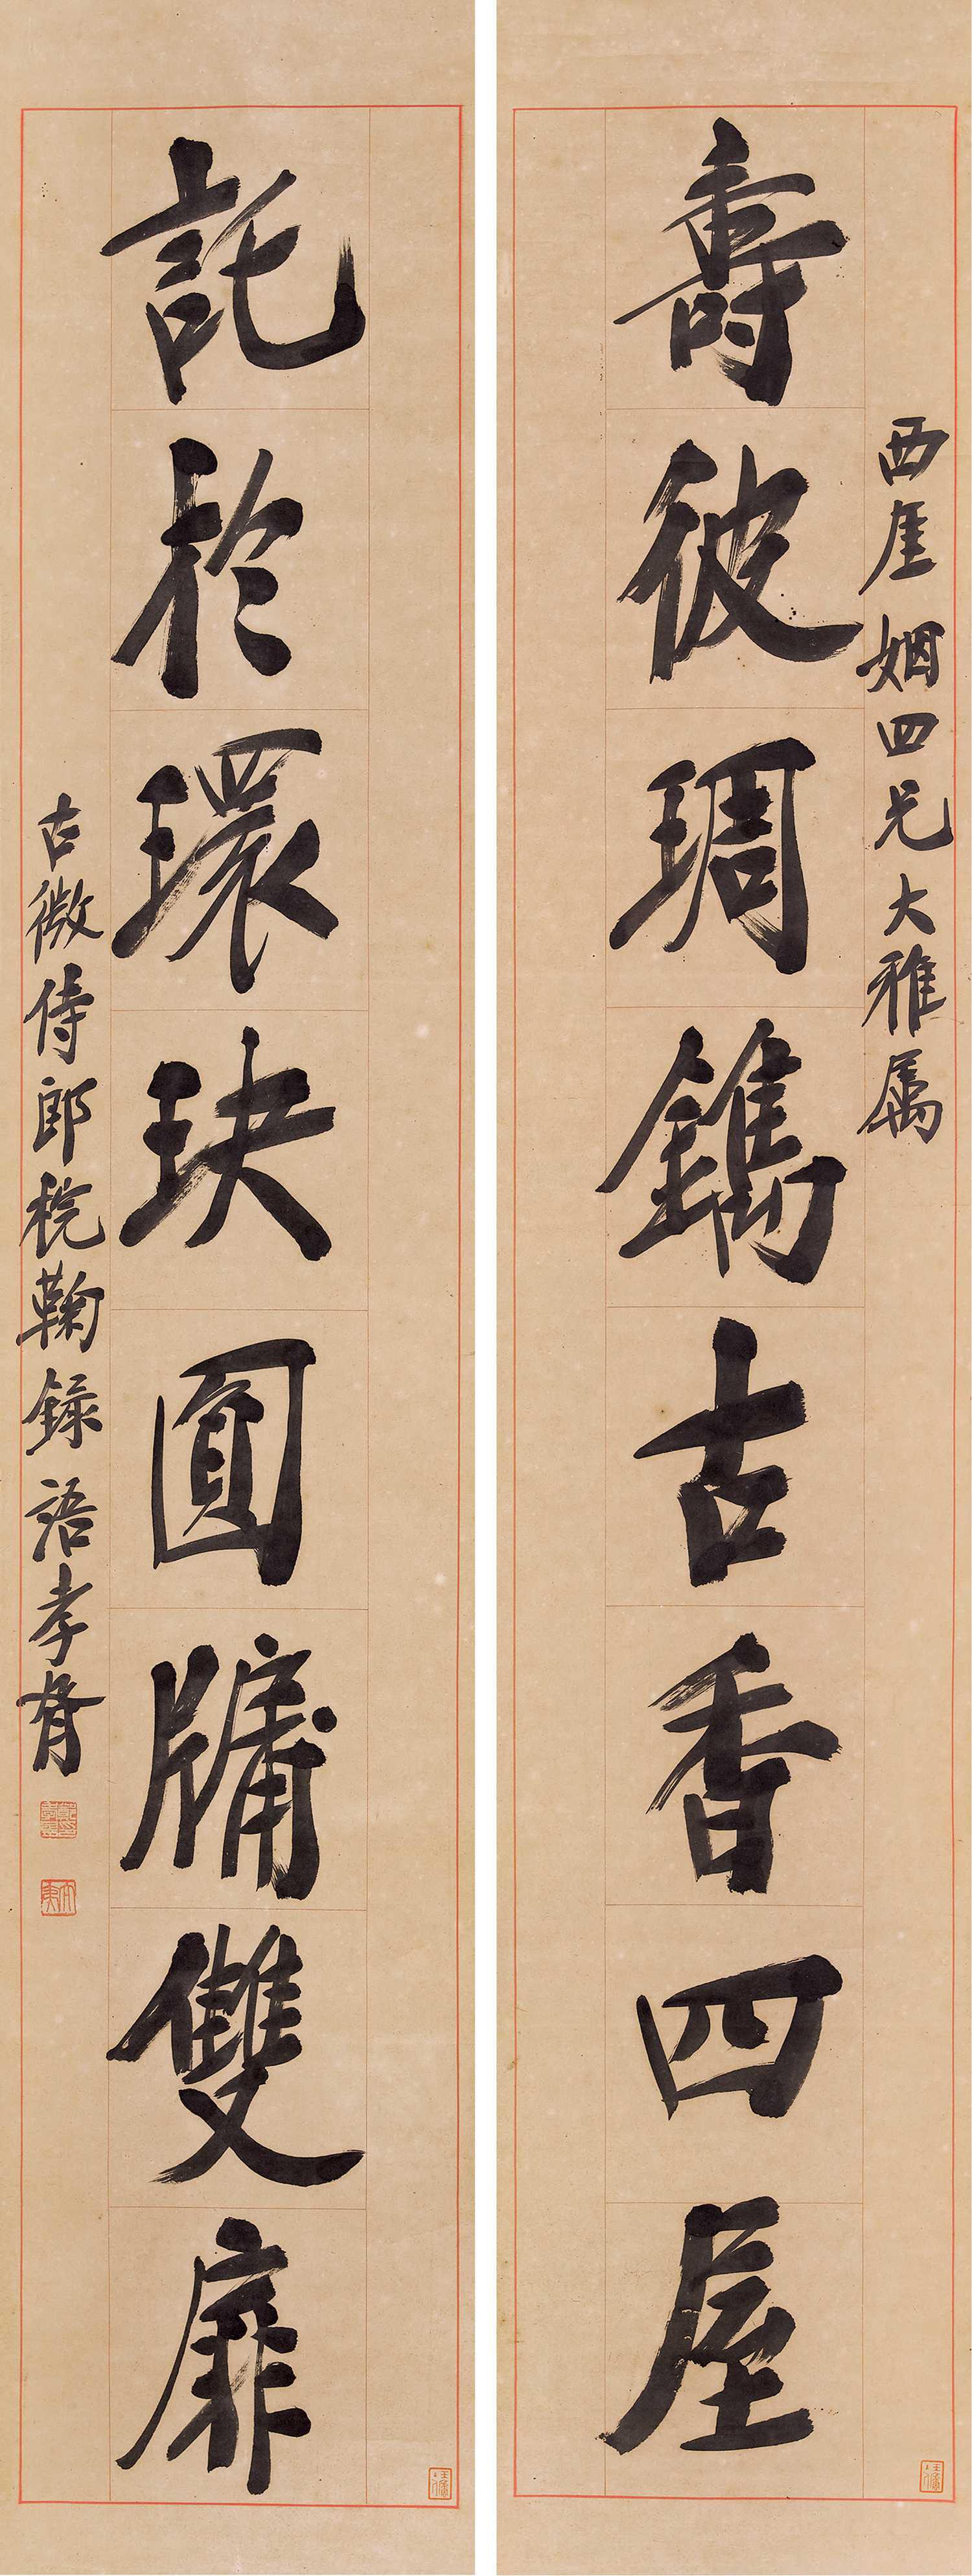 西厓姻四兄大雅属
壽彼琱鐫古香四屋
託於環玦圓牖雙扉
古微侍郎税鞠録語孝胥